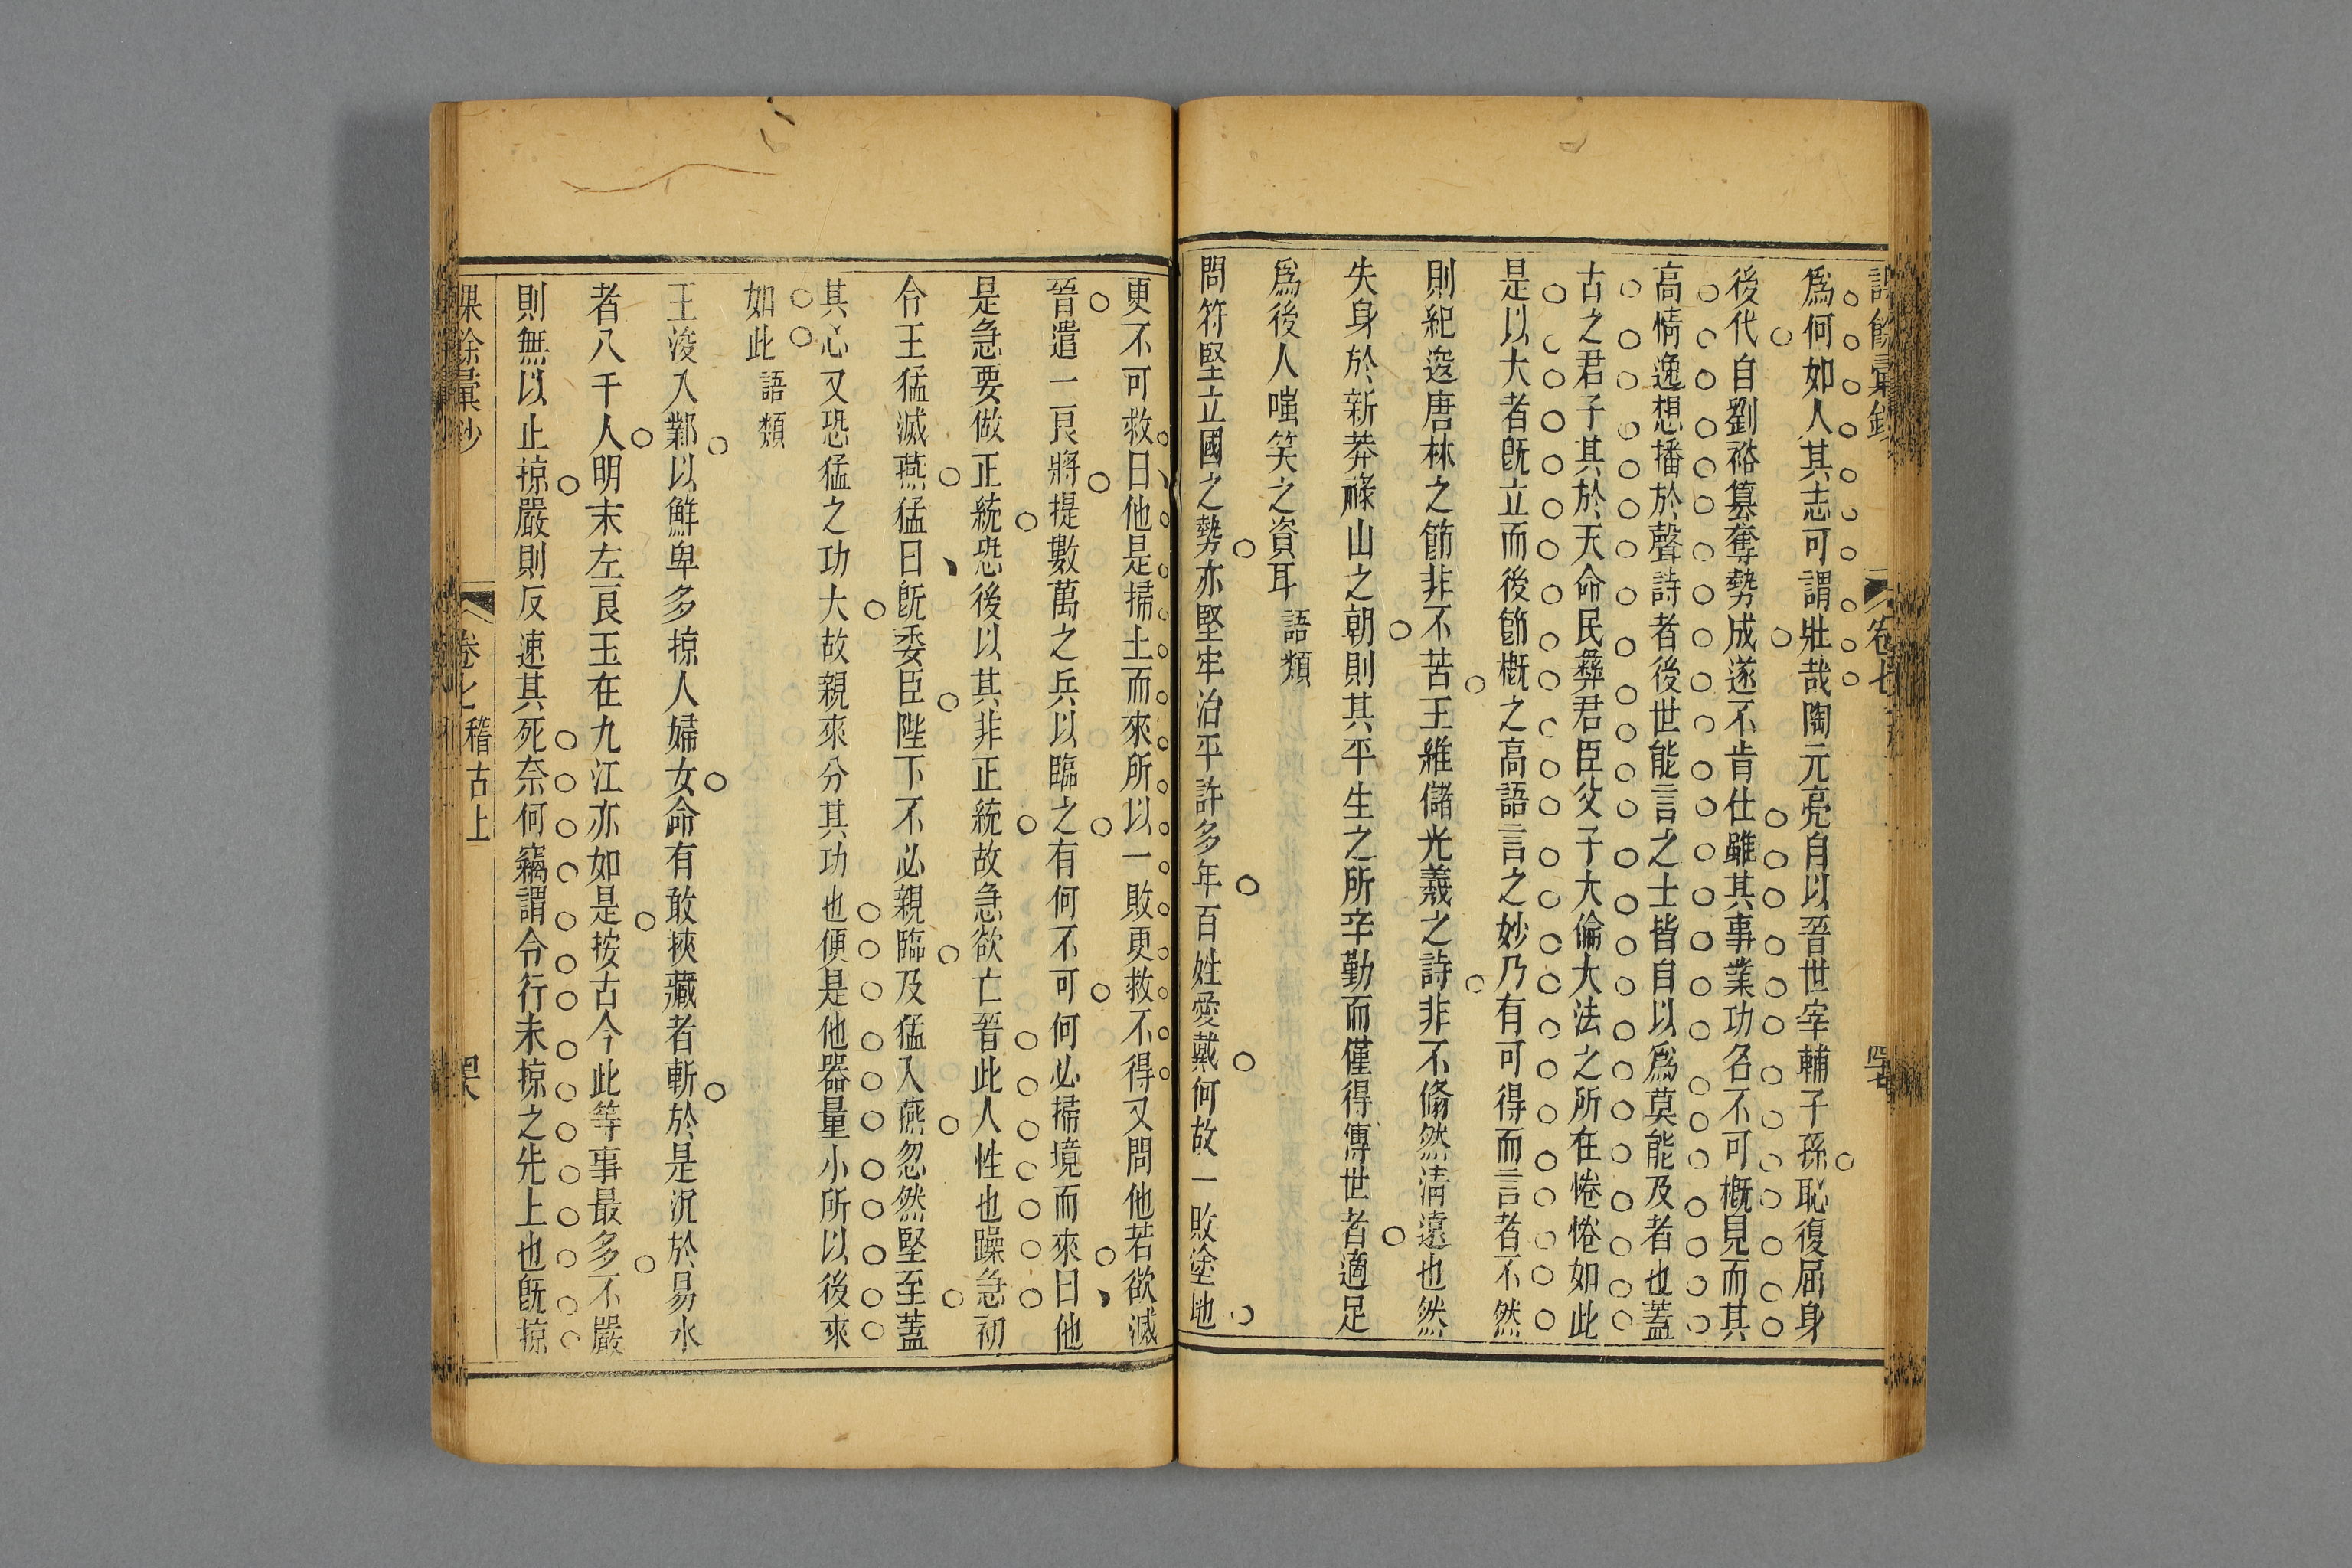 課餘彙鈔 卷七 四七
爲何如人其志可謂壯哉陶元亮自以晉世宰輔子孫恥復屈身
後代自劉裕簒奪勢成遂不肯仕雖其事業功名不可槪見而其
高情逸想播於聲詩者後世能言之士皆自以爲莫能及者也蓋
古之君子其於天命民彝君臣父子大倫大法之所在惓惓如此
是以大者旣立而後節槪之高語言之妙乃有可得而言者不然
則紀逡唐林之節非不苦王維儲光羲之詩非不翛然淸遠也然
失身於新莽祿山之朝則其平生之所辛勤而僅得傳世者適足
爲後人嗤笑之資耳 語類
問符堅立國之勢亦堅牢治平許多年百姓愛戴何故一敗塗地
更不可救曰他是掃土而來所以一敗更救不得又問他若欲滅
晉遣一二良將提數萬之兵以臨之有何不可何必掃境而來曰他
是急要做正統恐後以其非正統故急欲亡晉此人性也躁急初
令王猛滅燕猛曰旣委臣陛下不必親臨及猛入燕忽然堅至蓋
其心又恐猛之功大故親來分其功也便是他器量小所以後來
如此 語類
王浚入鄴以鮮卑多掠人婦女命有敢挾藏者斬於是沉於易水
者八千人明末左良玉在九江亦如是按古今此等事最多不嚴
則無以止掠嚴則反速其死奈何竊謂令行未掠之先上也旣掠
課餘彙鈔 卷七 稽古上